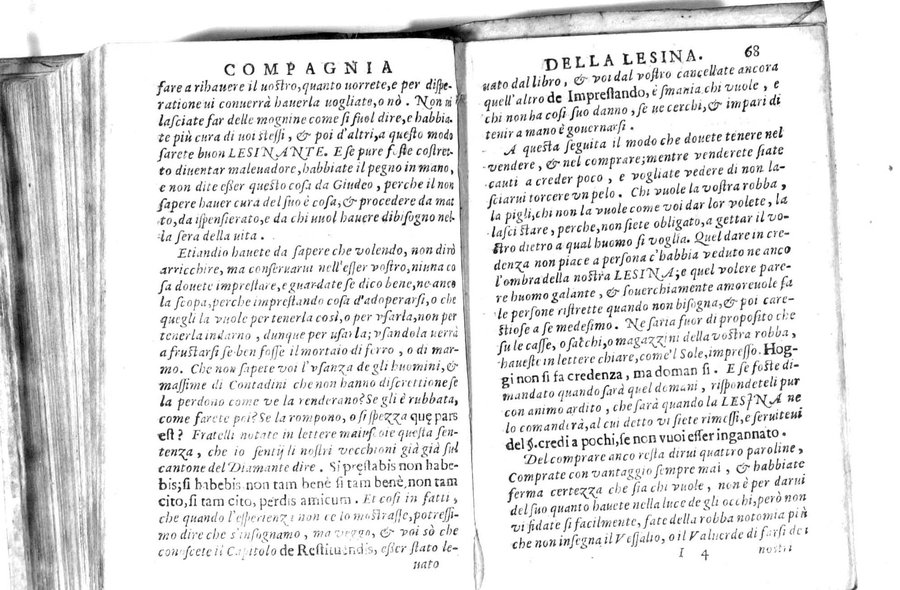 COMPAGNIA
fare a rihauere il uostro, quanto uorrete, e per dispe-
ratione ui conuerrà hauerla uogliate, o nò. Non ui
lasciate far delle mognine come si suol dire, e habbia
te più cura di uoi stessi, & poi d'altri, a questo modo
sarete buon LESINANTE. E se pure foste costret
to diuentar maleuadore, habbiate il pegno in mano,
e non dite esser questo cosa da Giudeo, perche il non
sapere hauer cura del suo è cosa, & procedere da mat
to, da ispensierato, e da chi uuol hauere dibisogno nel-
la sera della uita.
Etiandio hauete da sapere che volendo, non dirò
arricchire, ma conseruarui nell'esser vostro, niuna co
sa douete imprestare, e guardate se dico bene, ne anco
la scopa, perche imprestando cosa d'adoperarsi, o che
quegli la vuole per tenerla così, o per vsarla, non per
tenerla indarno, dunque per usarla; vsandola uerrà
a frustarsi se ben fosse il mortaio di ferro, o di mar-
mo. Che non sapete voi l'vsanza degli huomini, &
massime di Contadini che non hanno discrettione se
la perdono come ve la renderano? Se gli è rubbata,
come farete poi? Se la rompono, o si spezza quę pars
est? Fratelli notate in lettere maiuscole questa sen-
tenza, che io sentij li nostri vecchioni già già sul
cantone del Diamante dire. Si pręstabis non habe-
bis; si habebis non tam benè si tam benè, non tam
cito, si tam cito, perdis amicum. Et così in fatti,
che quando l'esperienza non ce lo mostrasse, potressi-
mo dire che s'insognamo, ma veggo, & voi sò che
conoscete il Capitolo de Restituendis, esser stato le-
uato
DELLA LESINA. 68
uato dal libro, & voi dal vostro cancellate ancora
quell'altro de Imprestando, è smania chi vuole, e
chi non ha così suo danno, se ue cerchi, & impari di
tenir a mano è gouernarsi.
A questa seguita il modo che douete tenere nel
vendere, & nel comprare; mentre venderete siate
cauti a creder poco, e vogliate vedere di non la-
sciarui torcere un pelo. Chi vuole la vostra robba,
la pigli, chi non la vuole come voi dar lor volete, la
lasci stare, perche, non siete obligato, a gettar il vo-
stro dietro a qual huomo si voglia. Quel dare in cre-
denza non piace a persona c'habbia veduto ne anco
l'ombra della nostra LESINA; e quel volere pare-
re huomo galante, & souerchiamente amoreuole fa
le persone ristrette quando non bisogna, & poi care-
stiose a se medesimo. Ne saria fuor di proposito che
su le casse, o sacchi, o magazzini della vostra robba,
haueste in lettere chiare, come'l Sole, impresso. Hog-
gi non si fa credenza, ma doman si. E se foste di-
mandato quando sarà quel domani, rispondeteli pur
con animo ardito, che sarà quando la LESINA ne
lo comanderà, al cui detto vi siete rimessi, e seruiteui
del §. credi a pochi, se non vuoi esser ingannato.
Del comprare anco resta dirui quattro paroline,
Comprate con vantaggio sempre mai, & habbiate
ferma certezza che sia chi vuole, non è per darui
del suo quanto hauete nella luce degli occhi, però non
vi fidate si facilmente, fate della robba notomia più
che non insegna il Vessalio, o il Valuerde di farsi de i
I 4 nostri